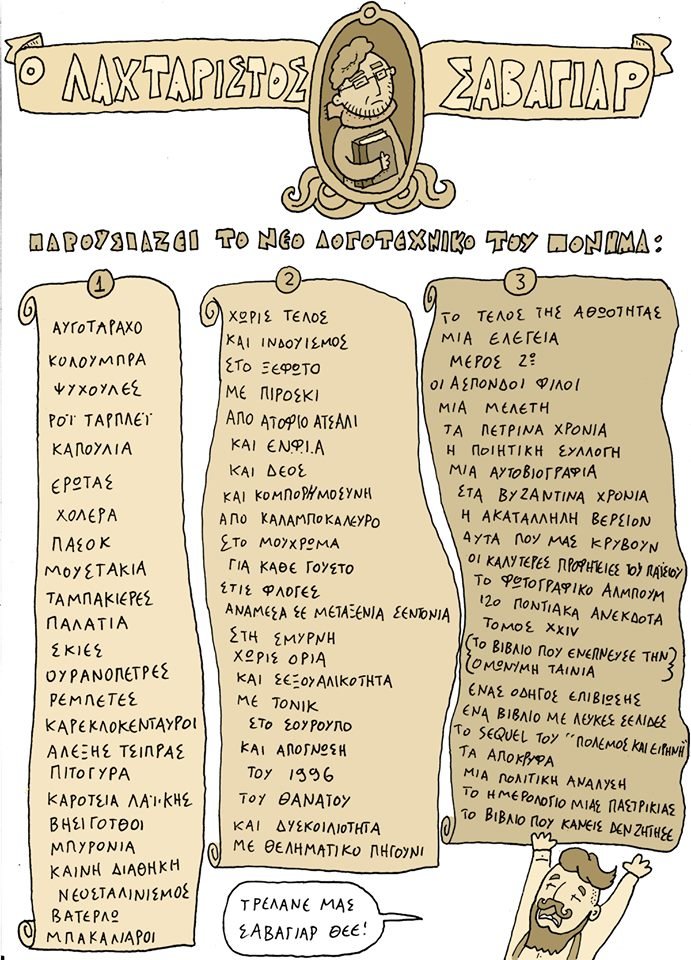 Ο ΛΑΧΤΑΡΙΣΤΟΣ ΣΑΒΑΓΙΑΡ
ΠΑΡΟΥΣΙΑΖΕΙ ΤΟ ΝΕΟ ΛΟΓΟΤΕΧΝΙΚΟ ΤΟΥ ΠΟΝΗΜΑ:
1
ΑΥΓΟΤΑΡΑΧΟ
ΚΟΛΟΥΜΠΡΑ
ΨΥΧΟΥΛΕΣ
ΡΟΪ ΤΑΡΠΛΕΪ
ΚΑΠΟΥΛΙΑ
ΕΡΩΤΑΣ
ΧΟΛΕΡΑ
ΠΑΣΟΚ
ΜΟΥΣΤΑΚΙΑ
ΤΑΜΠΑΚΙΕΡΕΣ
ΠΑΛΑΤΙΑ
ΣΚΙΕΣ
ΟΥΡΑΝΟΠΕΤΡΕΣ
ΡΕΜΠΕΤΕΣ
ΚΑΡΕΚΛΟΚΕΝΤΑΥΡΟΙ
ΑΛΕΞΗΣ ΤΣΙΠΡΑΣ
ΠΙΤΟΓΥΡΑ
ΚΑΡΟΤΣΙΑ ΛΑΪΚΗΣ
ΒΗΣΙΓΟΤΘΟΙ
ΜΠΥΡΟΝΙΑ
ΚΑΙΝΗ ΔΙΑΘΗΚΗ
ΝΕΟΣΤΑΛΙΝΙΣΜΟΣ
ΒΑΤΕΡΛΩ
ΜΠΑΚΑΛΙΑΡΟΙ
2
ΧΩΡΙΣ ΤΕΛΟΣ
ΚΑΙ ΙΝΔΟΥΙΣΜΟΣ
ΣΤΟ ΞΕΦΩΤΟ
ΜΕ ΠΙΡΟΣΚΙ
ΑΠΟ ΑΤΟΦΙΟ ΑΤΣΑΛΙ
ΚΑΙ ΕΝΦΙΑ
ΚΑΙ ΔΕΟΣ
ΚΑΙ ΚΟΜΠΟΡΡΗΜΟΣΥΝΗ
ΑΠΟ ΚΑΛΑΜΠΟΚΑΛΕΥΡΟ
ΣΤΟ ΜΟΥΧΡΩΜΑ
ΓΙΑ ΚΑΘΕ ΓΟΥΣΤΟ
ΣΤΙΣ ΦΛΟΓΕΣ
ΑΝΑΜΕΣΑ ΣΕ ΜΕΤΑΞΕΝΙΑ ΣΕΝΤΟΝΙΑ
ΣΤΗ ΣΜΥΡΝΗ
ΧΩΡΙΣ ΟΡΙΑ
ΚΑΙ ΣΕΞΟΥΑΛΙΚΟΤΗΤΑ
ΜΕ ΤΟΝΙΚ
ΣΤΟ ΣΟΥΡΟΥΠΟ
ΚΑΙ ΑΠΟΓΝΩΣΗ
ΤΟΥ 1996
ΤΟΥ ΘΑΝΑΤΟΥ
ΚΑΙ ΔΥΣΚΟΙΛΙΟΤΗΤΑ
ΜΕ ΘΕΛΗΜΑΤΙΚΟ ΠΗΓΟΥΝΙ
3
ΤΟ ΤΕΛΟΣ ΤΗΣ ΑΘΩΟΤΗΤΑΣ
ΜΙΑ ΕΛΕΓΕΙΑ
ΜΕΡΟΣ 2ο
ΟΙ ΑΣΠΟΝΔΟΙ ΦΙΛΟΙ
ΜΙΑ ΜΕΛΕΤΗ
ΤΑ ΠΕΤΡΙΝΑ ΧΡΟΝΙΑ
Η ΠΟΙΗΤΙΚΗ ΣΥΛΛΟΓΗ
ΜΙΑ ΑΥΤΟΒΙΟΓΡΑΦΙΑ
ΣΤΑ ΒΥΖΑΝΤΙΝΑ ΧΡΟΝΙΑ
Η ΑΚΑΤΑΛΛΗΛΗ ΒΕΡΣΙΟΝ
ΑΥΤΑ ΠΟΥ ΜΑΣ ΚΡΥΒΟΥΝ
ΟΙ ΚΑΛΥΤΕΡΕΣ ΠΡΟΦΗΤΕΙΕΣ ΤΟΥ ΠΑΪΣΙΟΥ
ΤΟ ΦΩΤΟΓΡΑΦΙΚΟ ΑΛΜΠΟΥΜ
120 ΠΟΝΤΙΑΚΑ ΑΝΕΚΔΟΤΑ
ΤΟΜΟΣ XXIV
(ΤΟ ΒΙΒΛΙΟ ΠΟΥ ΕΝΕΠΝΕΥΣΕ ΤΗΝ
ΟΜΩΝΥΜΗ ΤΑΙΝΙΑ)
ΕΝΑΣ ΟΔΗΓΟΣ ΕΠΙΒΙΩΣΗΣ
ΕΝΑ ΒΙΒΛΙΟ ΜΕ ΛΕΥΚΕΣ ΣΕΛΙΔΕΣ
ΤΟ SEQUEL ΤΟΥ "ΠΟΛΕΜΟΣ ΚΑΙ ΕΙΡΗΝΗ"
ΤΑ ΑΠΟΚΡΥΦΑ
ΜΙΑ ΠΟΛΙΤΙΚΗ ΑΝΑΛΥΣΗ
ΤΟ ΗΜΕΡΟΛΟΓΙΟ ΜΙΑΣ ΠΑΣΤΡΙΚΙΑΣ
ΤΟ ΒΙΒΛΙΟ ΠΟΥ ΚΑΝΕΙΣ ΔΕΝ ΖΗΤΗΣΕ
ΤΡΕΛΑΝΕ ΜΑΣ
ΣΑΒΑΓΙΑΡ ΘΕΕ!